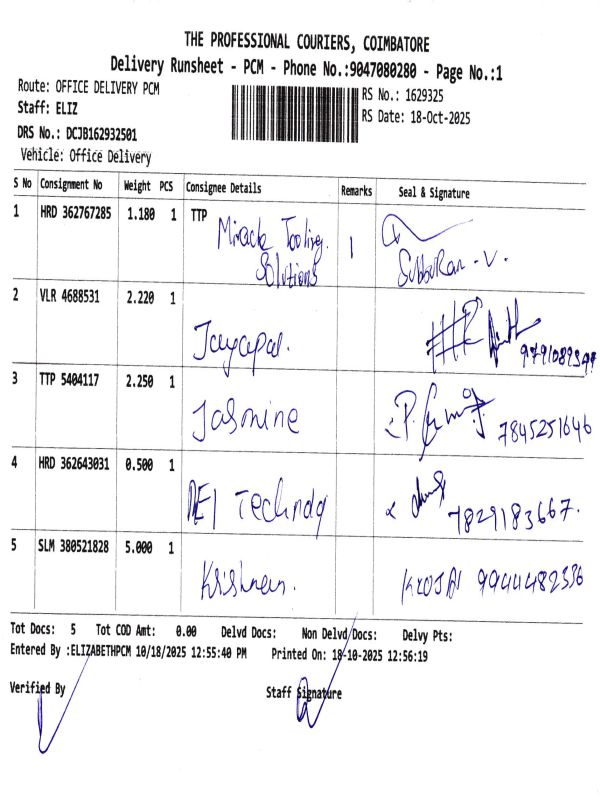 THE PROFESSIONAL COURIERS, COIMBATORE
Delivery Runsheet - PCM - Phone No.:9047080280 - Page No.:1
Route: OFFICE DELIVERY PCM
RS No.: 1629325
Staff: ELIZ
RS Date: 18-Oct-2025
DRS No.: DCJB162932501
Vehicle: Office Delivery
S No Consignment No Weight PCS Consignee Details Remarks Seal & Signature
1 HRD 362767285 1.180 1 TTP
Miracle Tooling Solutions
Subburan - V.
2 VLR 4688531 2.220 1
Jayapal.
3 TTP 5404117 2.250 1
Jasmine
7845251646
4 HRD 362643031 0.500 1
Technolg
7829183667.
5 SLM 380521828 5.000 1
Krishnan.
9944482336
Tot Docs: 5 Tot COD Amt: 0.00 Delvd Docs: Non Delvd Docs: Delvy Pts:
Entered By :ELIZABETHPCM 10/18/2025 12:55:40 PM Printed On: 18-10-2025 12:56:19
Verified By Staff Signature